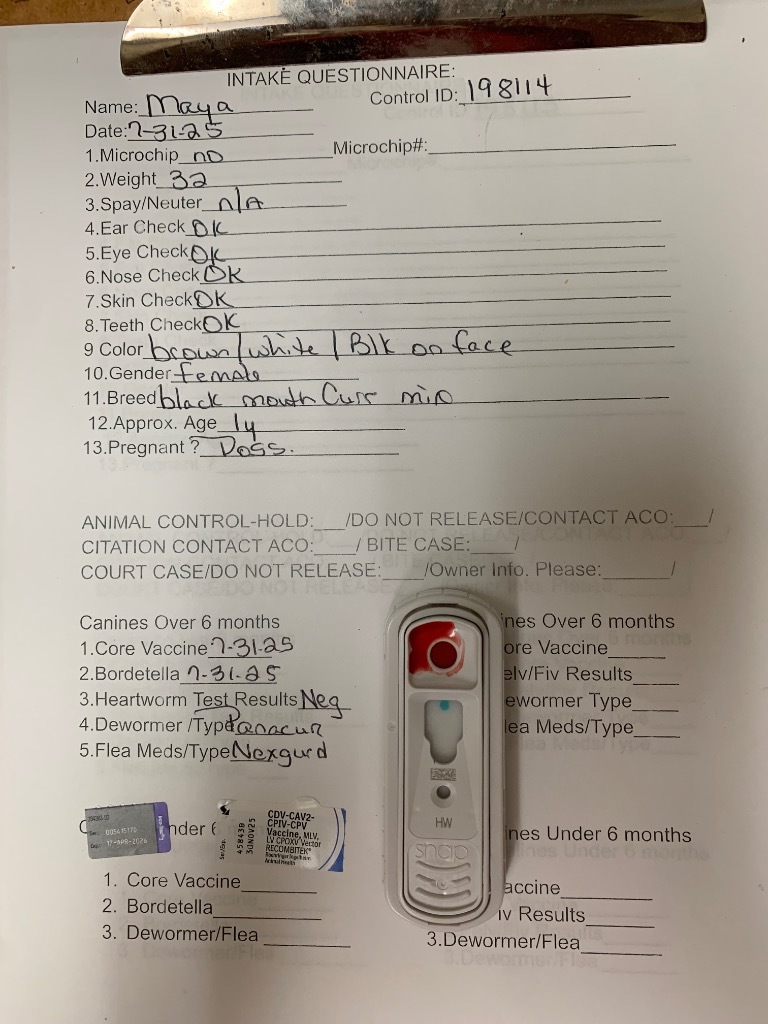 INTAKE QUESTIONNAIRE:
Name: Maya Control ID: 198114
Date: 7-31-25
1.Microchip no Microchip#:
2.Weight 32
3.Spay/Neuter n/A
4.Ear Check OK
5.Eye Check OK
6.Nose Check OK
7.Skin Check OK
8.Teeth Check OK
9 Color brown/white / Blk on face
10.Gender female
11.Breed black mouth Curr mix
12.Approx. Age 1y
13.Pregnant ? Poss.
ANIMAL CONTROL-HOLD:___/DO NOT RELEASE/CONTACT ACO:___/
CITATION CONTACT ACO:____/ BITE CASE:____/
COURT CASE/DO NOT RELEASE:____/Owner Info. Please:______/
Canines Over 6 months
1.Core Vaccine 7-31-25
2.Bordetella 7-31-25
3.Heartworm Test Results Neg
4.Dewormer /Type Panacur
5.Flea Meds/Type Nexgurd
ines Over 6 months
ore Vaccine
elv/Fiv Results
ewormer Type
lea Meds/Type
HW
snap
17-APR-2026
Ser./Exp.
45843B
30NOV25
CDV-CAV2-
CPIV-CPV
Vaccine, MLV,
LV CPOXV Vector
RECOMBITEK
Boehringer Ingelheim
Animal Health
nder 6
1. Core Vaccine
2. Bordetella
3. Dewormer/Flea
ines Under 6 months
accine
iv Results
3.Dewormer/Flea